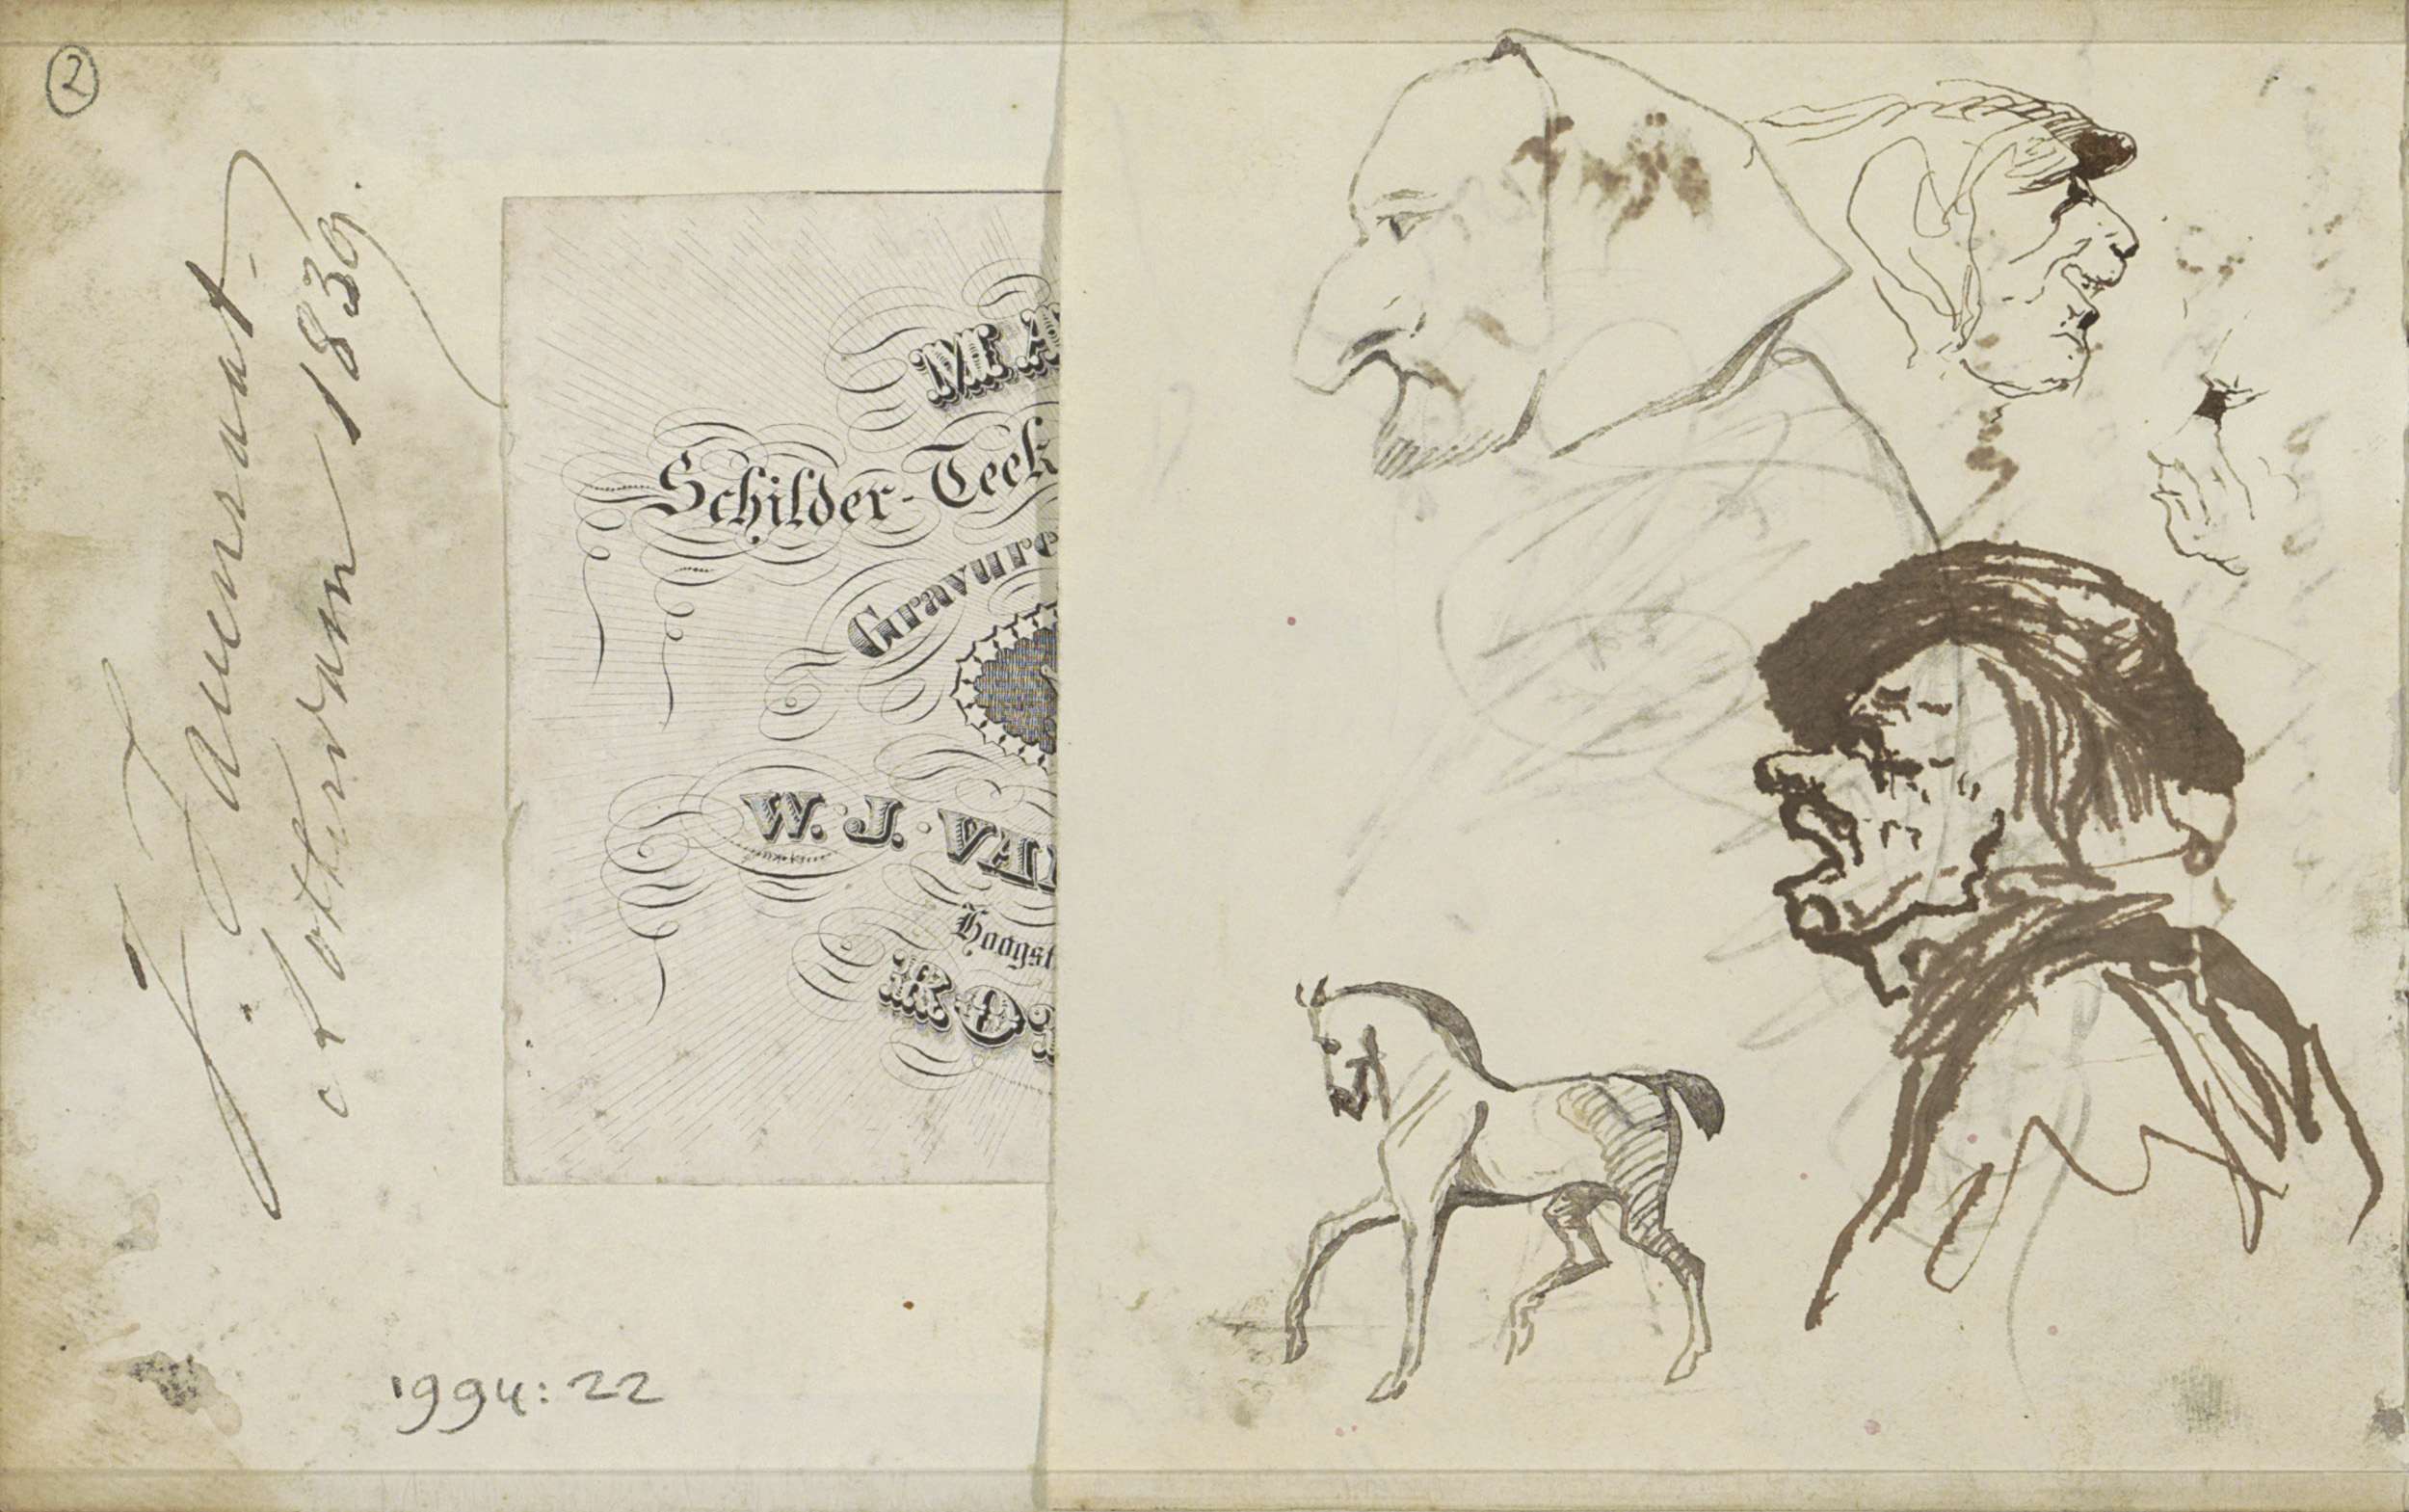 2
J. Tavenraat
Rotterdam 1839.
MA
Schilder-Teek
Gravure
W. J. VAN
Hoogst
ROT
1994:22